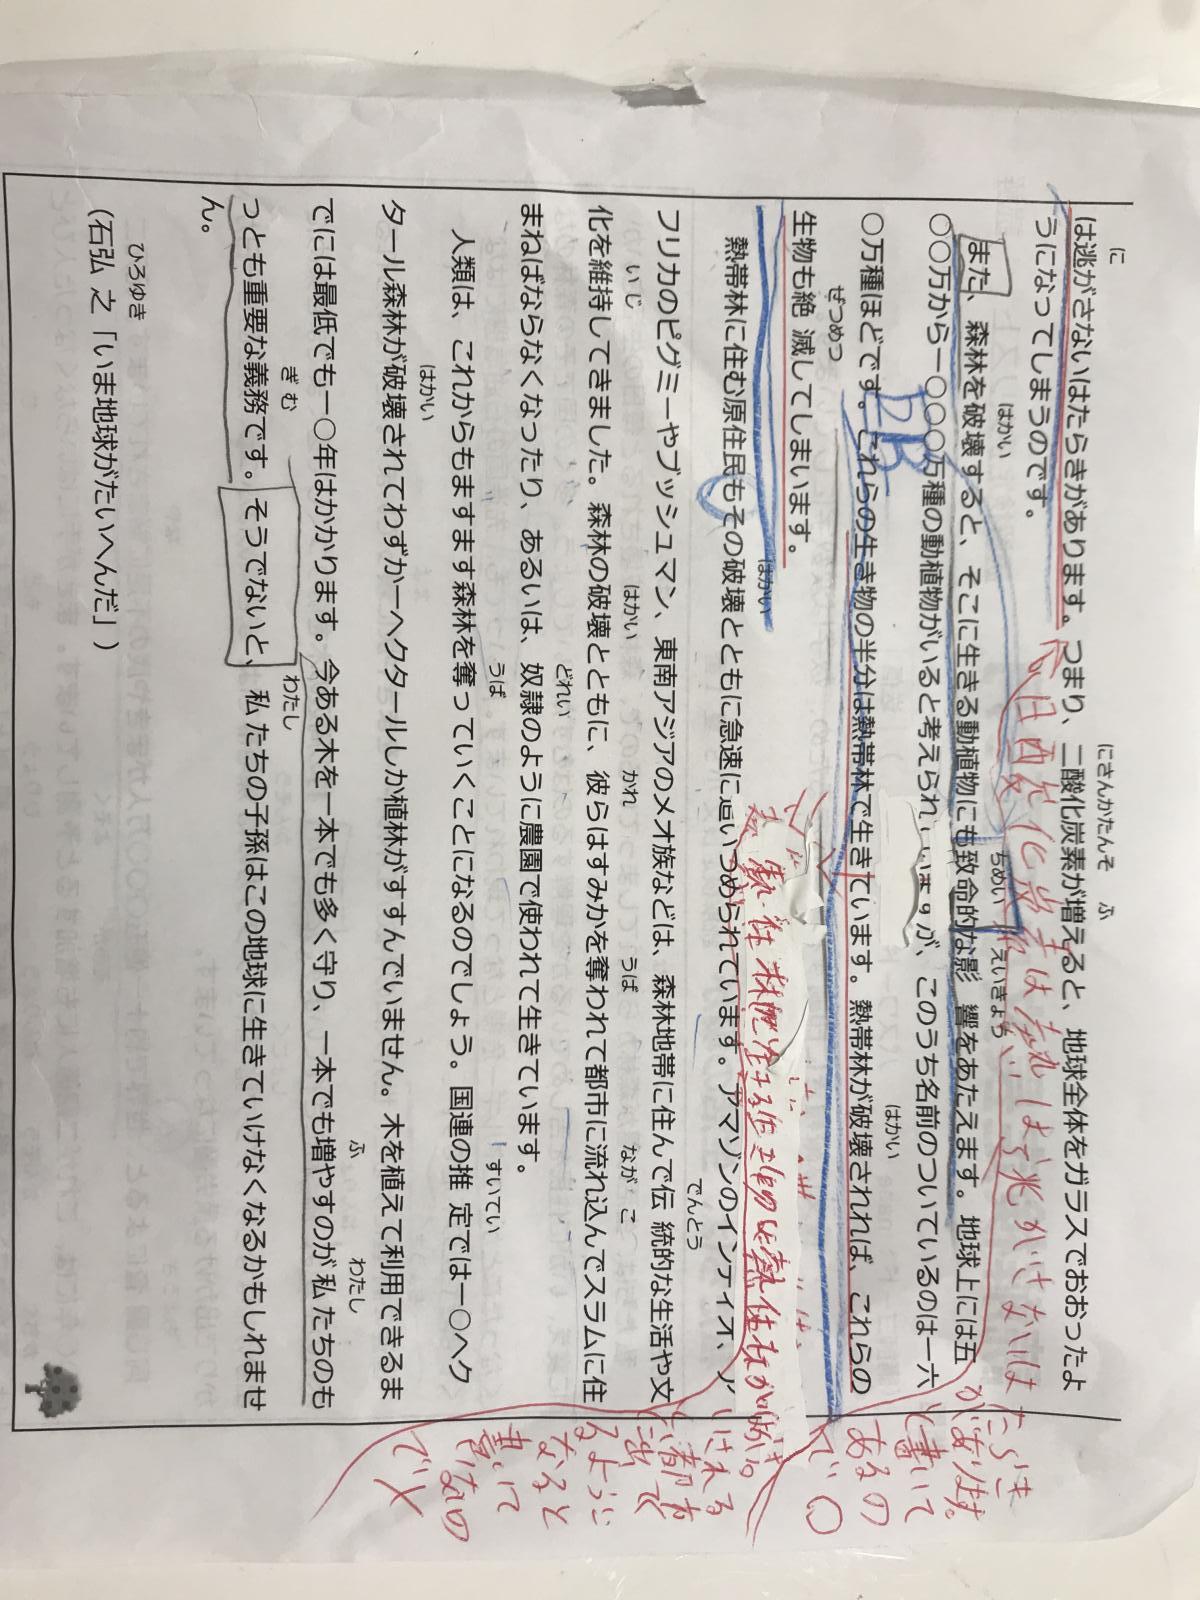 は逃がさないはたらきがあります。つまり、二酸化炭素が増えると、地球全体をガラスでおおったよ
うになってしまうのです。
また、森林を破壊すると、そこに生きる動植物にも致命的な影響をあたえます。地球上には五
〇〇万から一〇〇〇万種の動植物がいると考えられていますが、このうち名前のついているのは一六
〇万種ほどです。これらの生き物の半分は熱帯林で生きています。熱帯林が破壊されれば、これらの
生物も絶滅してしまいます。
熱帯林に住む原住民もその破壊とともに急速に追いつめられています。アマゾンのインディオ、ア
フリカのピグミーやブッシュマン、東南アジアのメオ族などは、森林地帯に住んで伝統的な生活や文
化を維持してきました。森林の破壊とともに、彼らはすみかを奪われて都市に流れ込んでスラムに住
まねばならなくなったり、あるいは、奴隷のように農園で使われて生きています。
人類は、これからもますます森林を奪っていくことになるのでしょう。国連の推定では一〇ヘク
タール森林が破壊されてわずか一ヘクタールしか植林がすすんでいません。木を植えて利用できるま
でには最低でも一〇年はかかります。今ある木を一本でも多く守り、一本でも増やすのが私たちのも
っとも重要な義務です。そうでないと、私たちの子孫はこの地球に生きていけなくなるかもしれませ
ん。
(石弘之「いま地球がたいへんだ」)
があります。
と書いて
あるの
で〇
なると
書いて
ないの
で×